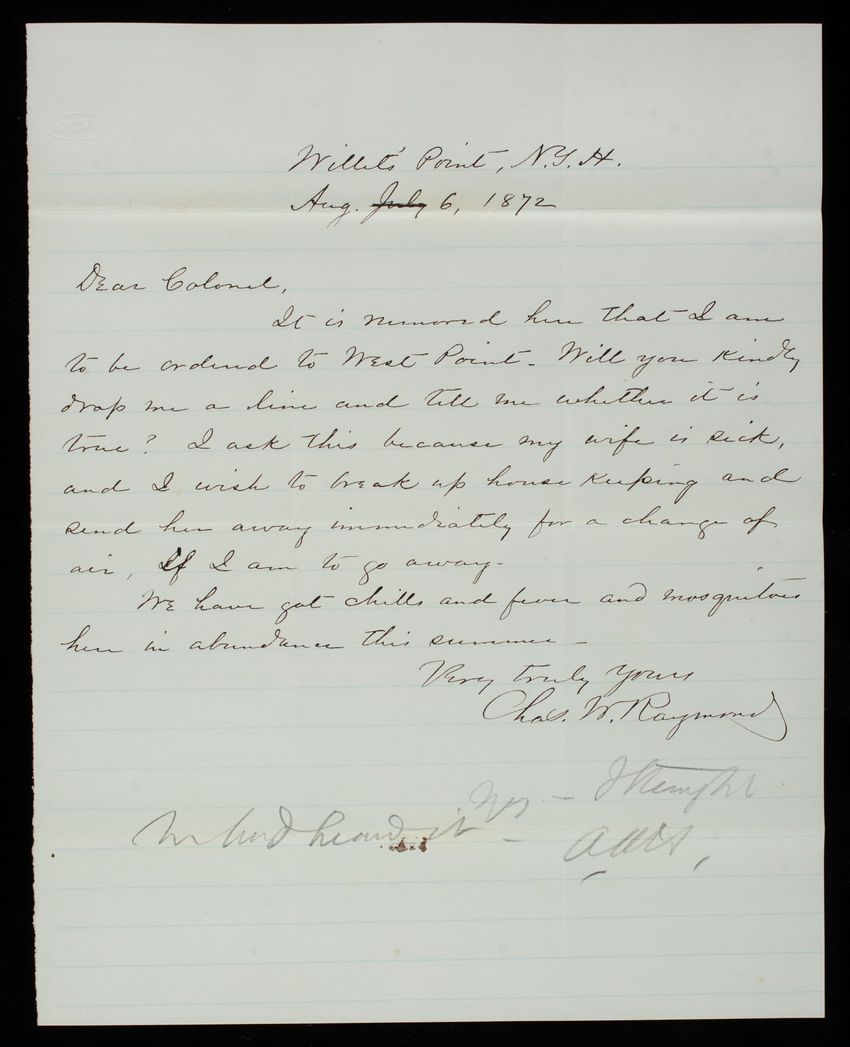 Willets' Point, N.Y.H.
Aug. July 6, 1872
Dear Colonel,
It is rumored here that I am
to be ordered to West Point. Will you kindly
drop me a line and tell me whether it is
true? I ask this because my wife is sick,
and I wish to break up house keeping and
send her away immediately for a change of
air, If I am to go away.
We have got chills and fever and mosquitoes
here in abundance this summer.
Very truly yours
Chas. W. Raymond
Yes —
heard it